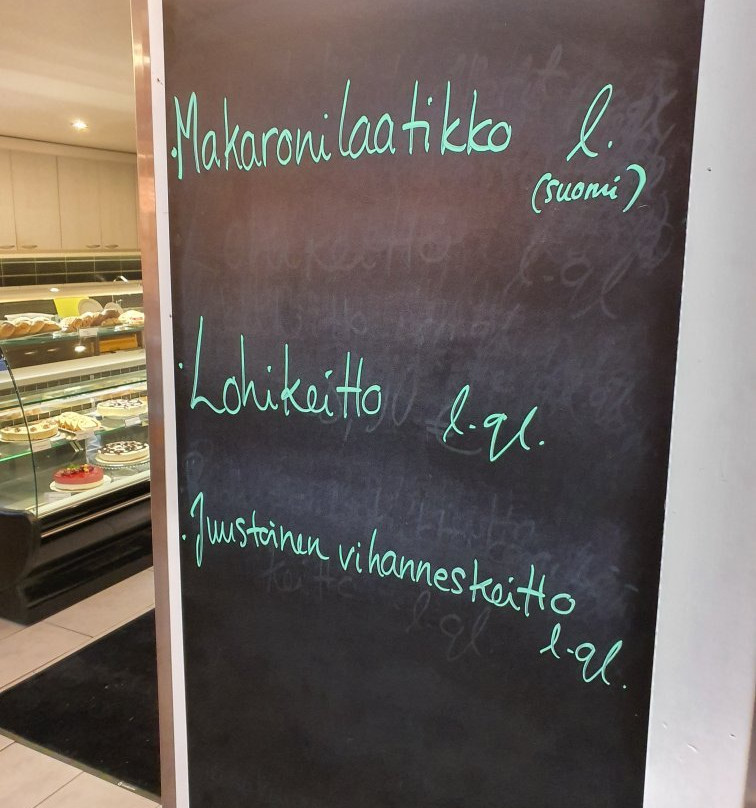 · Makaronilaatikko l.
(suomi)
· Lohikeitto l-gl.
· Juustoinen vihanneskeitto
l-gl.